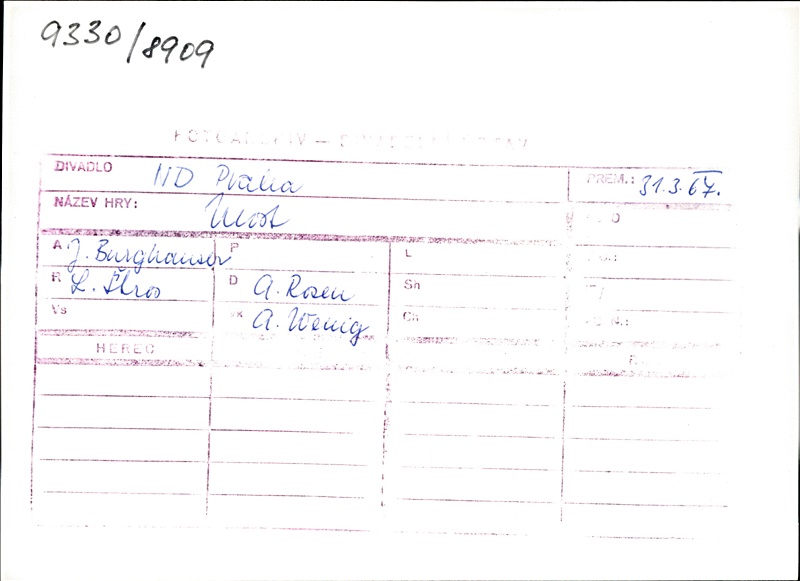 9330/8909
FOTOARCHIV — DIVADELNÍ ÚSTAV
DIVADLO ND Praha PREM.: 31.3.67.
NÁZEV HRY: Most
A J. Burghauser P L
R L. Štros D A. Rosen Sn
Vs SK A. Wenig Ch
HEREC